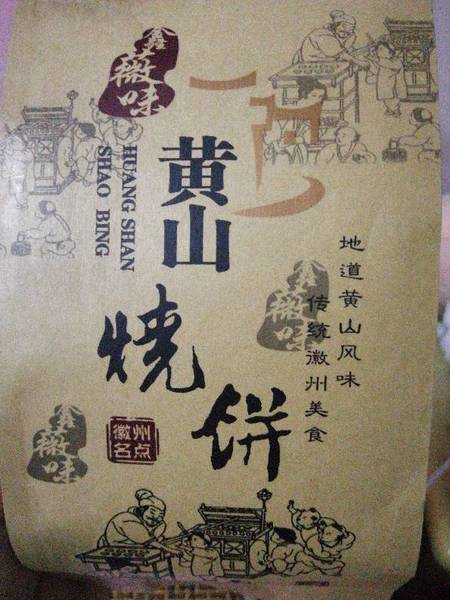 鑫
薇
味
黄山
HUANG SHAN
SHAO BING
烧饼
地道黄山风味
传统徽州美食
鑫
薇
味
徽州
名点
鑫
薇
味